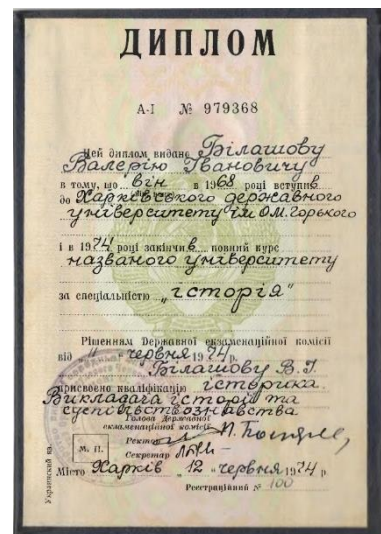 ДИПЛОМ
А-І № 979368
Цей диплом видано Білашову
Валерію Івановичу
в тому, що він в 1968 році вступив
до Харківського державного
університету ім О.М. Горького
і в 1974 році закінчив повний курс
названого університету
за спеціальністю „історія"
Рішенням Державної екзаменаційної комісії
від " " червня 1974 р.
Білашову В.І.
присвоєно кваліфікацію історика.
Викладача історії та
суспільствознавства
Голова Державної
екзаменаційної комісії
Ректор
Секретар
М. П.
Місто Харків „ 12 " червня 1974 р.
Реєстраційний № 100
Украинский яз.